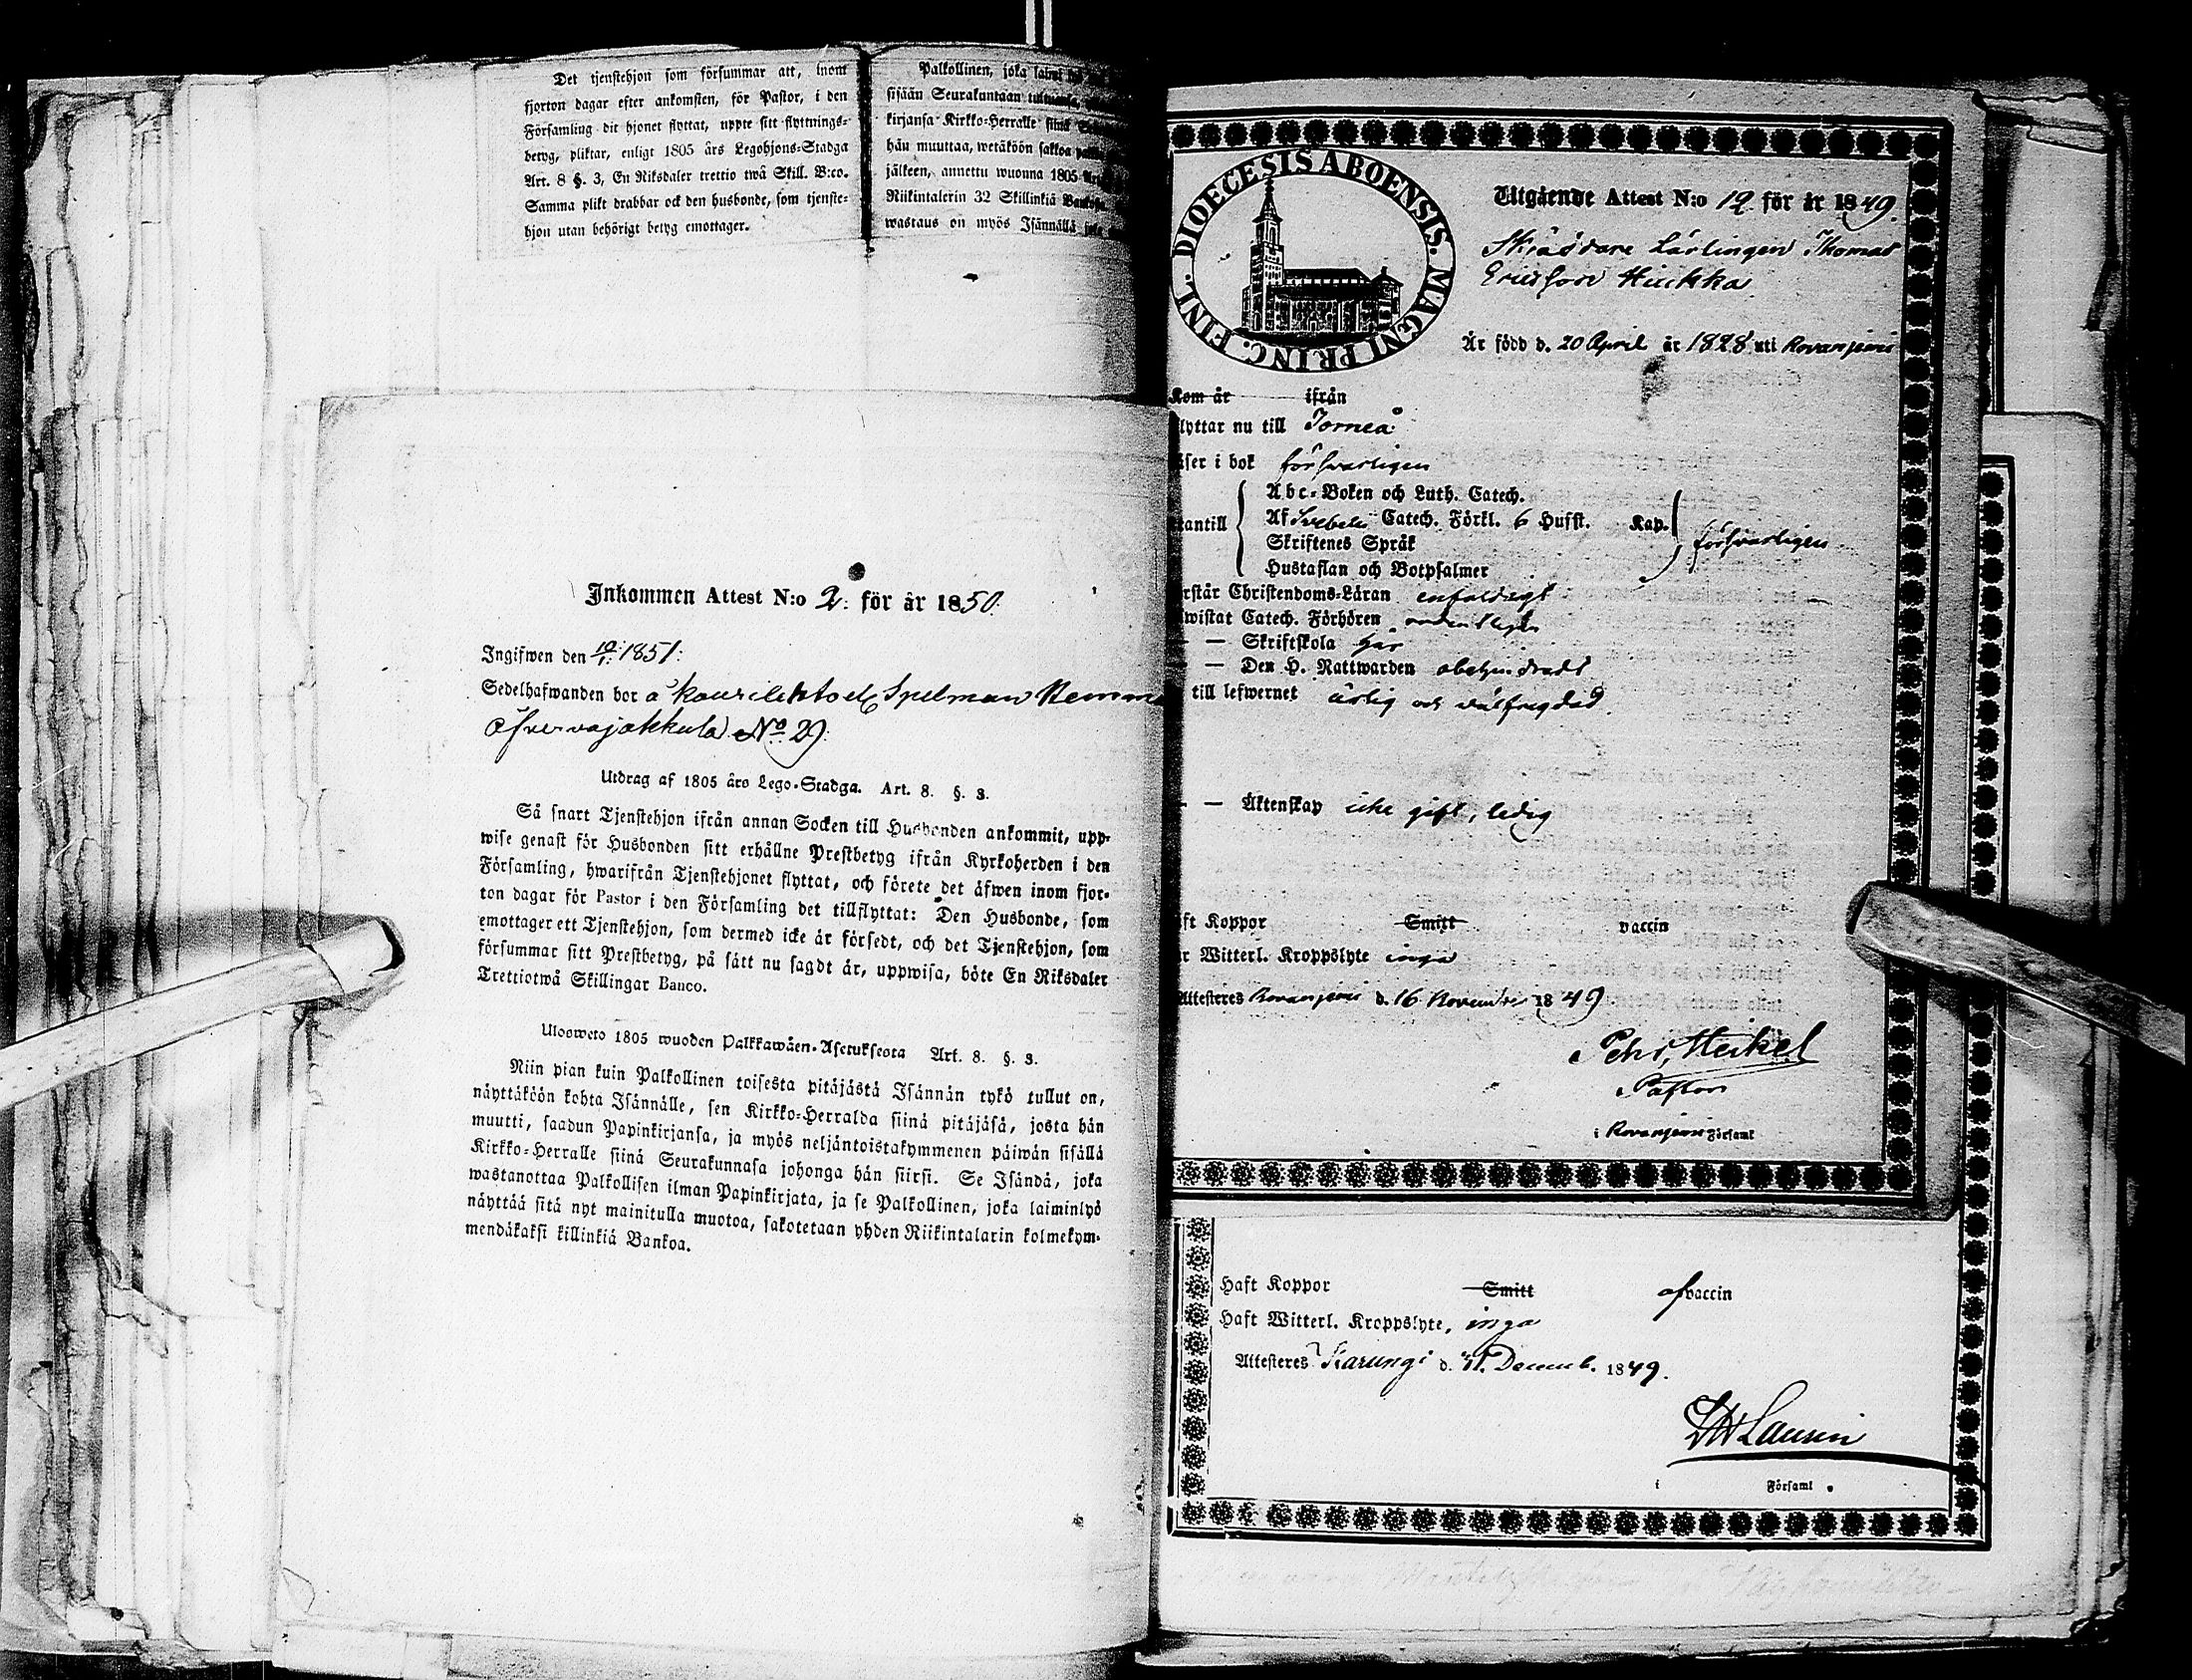 Det tjenstehjon som försummar att, inom
fjorton dagar efter ankomsten, för Pastor, i den
Församling dit hjonet flyttat, uppte sitt flyttnings-
betyg, pliktar, enligt 1805 års Legohjons-Stadga
Art. 8 §. 3, En Riksdaler trettio twå Skill. B:co.
Samma plikt drabbar ock den husbonde, som tjenste-
hjon utan behörigt betyg emottager.
Palkollinen, joka
sisään Seurakuntaan
kirjansa Kirkko-Herralle siinä
hän muuttaa, wetäköön sakkoa
jälkeen, annettu wuonna 1805
Riikintalerin 32 Skillinkiä
wastaus on myös Isännällä
Inkommen Attest N:o 2. för år 1850.
Ingifwen den 10/1. 1851.
Sedelhafwanden bor a Spelman
Öfvervojakkula No 29.
Utdrag af 1805 års Lego-Stadga. Art. 8. §. 3.
Så snart Tjenstehjon ifrån annan Socken till Husbonden ankommit, upp-
wise genast för Husbonden sitt erhållne Prestbetyg ifrån Kyrkoherden i den
Församling, hwarifrån Tjenstehjonet flyttat, och förete det äfwen inom fjor-
ton dagar för Pastor i den Församling det tillflyttat: Den Husbonde, som
emottager ett Tjenstehjon, som dermed icke är försedt, och det Tjenstehjon, som
försummar sitt Prestbetyg, på sätt nu sagdt är, uppwisa, böte En Riksdaler
Trettiotwå Skillingar Banco.
Ulosweto 1805 wuoden Palkkawäen-Asetuksesta Art. 8. §. 3.
Niin pian kuin Palkollinen toisesta pitäjästä Isännän tykö tullut on,
näyttäköön kohta Isännälle, sen Kirkko-Herralda siinä pitäjäsä, josta hän
muutti, saadun Papinkirjansa, ja myös neljäntoistakymmenen päiwän sisällä
Kirkko-Herralle siinä Seurakunnasa johonga hän siirsi. Se Isändä, joka
wastanottaa Palkollisen ilman Papinkirjata, ja se Palkollinen, joka laiminlyö
näyttää sitä nyt mainitulla muotoa, sakotetaan yhden Riikintalarin kolmekym-
mendäkaksi killinkiä Bankoa.
DIOECESIS ABOENSIS. MAGNI PRINC. FINL.
Utgående Attest N:o 12. för år 1849.
Skräddare Lärlingen Thomas
Ericsson Hiukka
Är född d. 20 April år 1828 uti Rovaniemi
Kom år ifrån
lyttar nu till Torneå
äser i bok försvarligen
tantill Abc-Boken och Luth. Catech.
Af Svebelii Catech. Förkl. 6 Hufst. Kap. försvarligen
Skriftenes Språk
Hustaflan och Botpsalmer
rstår Christendoms-Läran enfaldigt
wistat Catech. Förhören ordentligen
— — Skriftskola här
— — Den H. Nattwarden obehindradt
till lefwernet ärlig och välfrägdad.
— — Äktenskap icke gift, ledig
ft Koppor Smitt vaccin
r Witterl. Kroppslyte inga
Attesteres Rovaniemi d. 16 November 1849
Pehr Heikel
Pastor
i Rovaniemi Församl
Haft Koppor Smitt af vaccin
Haft Witterl. Kroppslyte, inga
Attesteres Karungi d. 31. Decemb. 1849.
Laurin
i Församl.